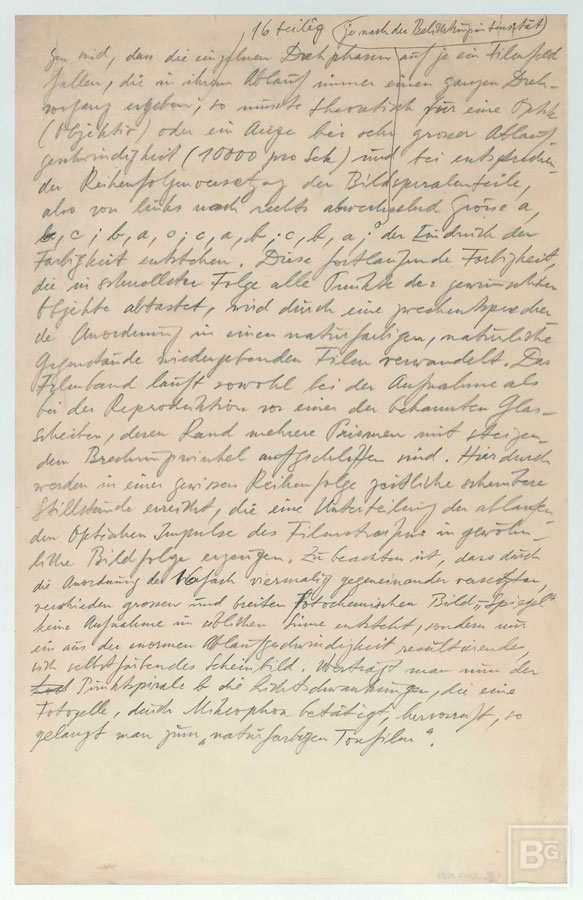 16 teilig (je nach der Belichtungsintensität)
gen sind, dass die einzelnen Drehphasen auf je ein Filmfeld
fallen, die in ihrem Ablauf immer einen ganzen Dreh-
vorgang ergeben, so müsste theoretisch für eine Optik
(Objektiv) oder ein Auge bei sehr grosser Ablauf
geschwindigkeit (10000 pro Sek) und bei entsprechen-
der Reihenfolgenversetzung der Bildspiralenteile,
also von links nach rechts abwechselnd Grösse a,
b, c; b, a, c; c, a, b; c, b, a, der Eindruck der
Farbigkeit entstehen. Diese fortlaufende Farbigkeit,
die in schnellster Folge alle Punkte des gewünschten
Objekts abtastet, wird durch eine zweckentsprechen
de Anordnung in einen naturfarbigen, natürliche
Gegenstände wiedergebenden Film verwandelt. Das
Filmband läuft sowohl bei der Aufnahme als
bei der Reproduktion vor einer der bekannten Glas-
scheiben, deren Rand mehrere Prismen mit steigen-
dem Brechungswinkel aufgeschliffen sind. Hierdurch
werden in einer gewissen Reihenfolge zeitliche scheinbare
Stillstände erreicht, die eine Unterteilung der ablaufen
den Optischen Impulse des Filmstreifens in gewöhn-
liche Bildfolge erzeugen. Zu beachten ist, dass durch
die Anordnung der 16fach viermalig gegeneinander versetzten,
verschieden grossen und breiten Fotochemischen Bild-„Spiegel"
keine Aufnahme im üblichen Sinne entsteht, sondern nur
ein aus der enormen Ablaufgeschwindigkeit resultierendes,
sich selbst färbendes Scheinbild. Überträgt man nun der
Punktspirale b die Lichtschwankungen, die eine
Fotozelle, durch Mikrophon betätigt, hervorruft, so
gelangt man zum „naturfarbigen Tonfilm".
BG